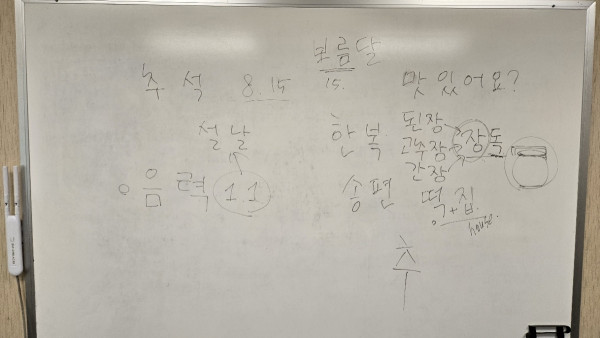 보름달
추석 8.15 15. 맛있어요?
설날 한복 된장
고추장 장독
간장
음력 1 1 송편 떡+집
house.
추